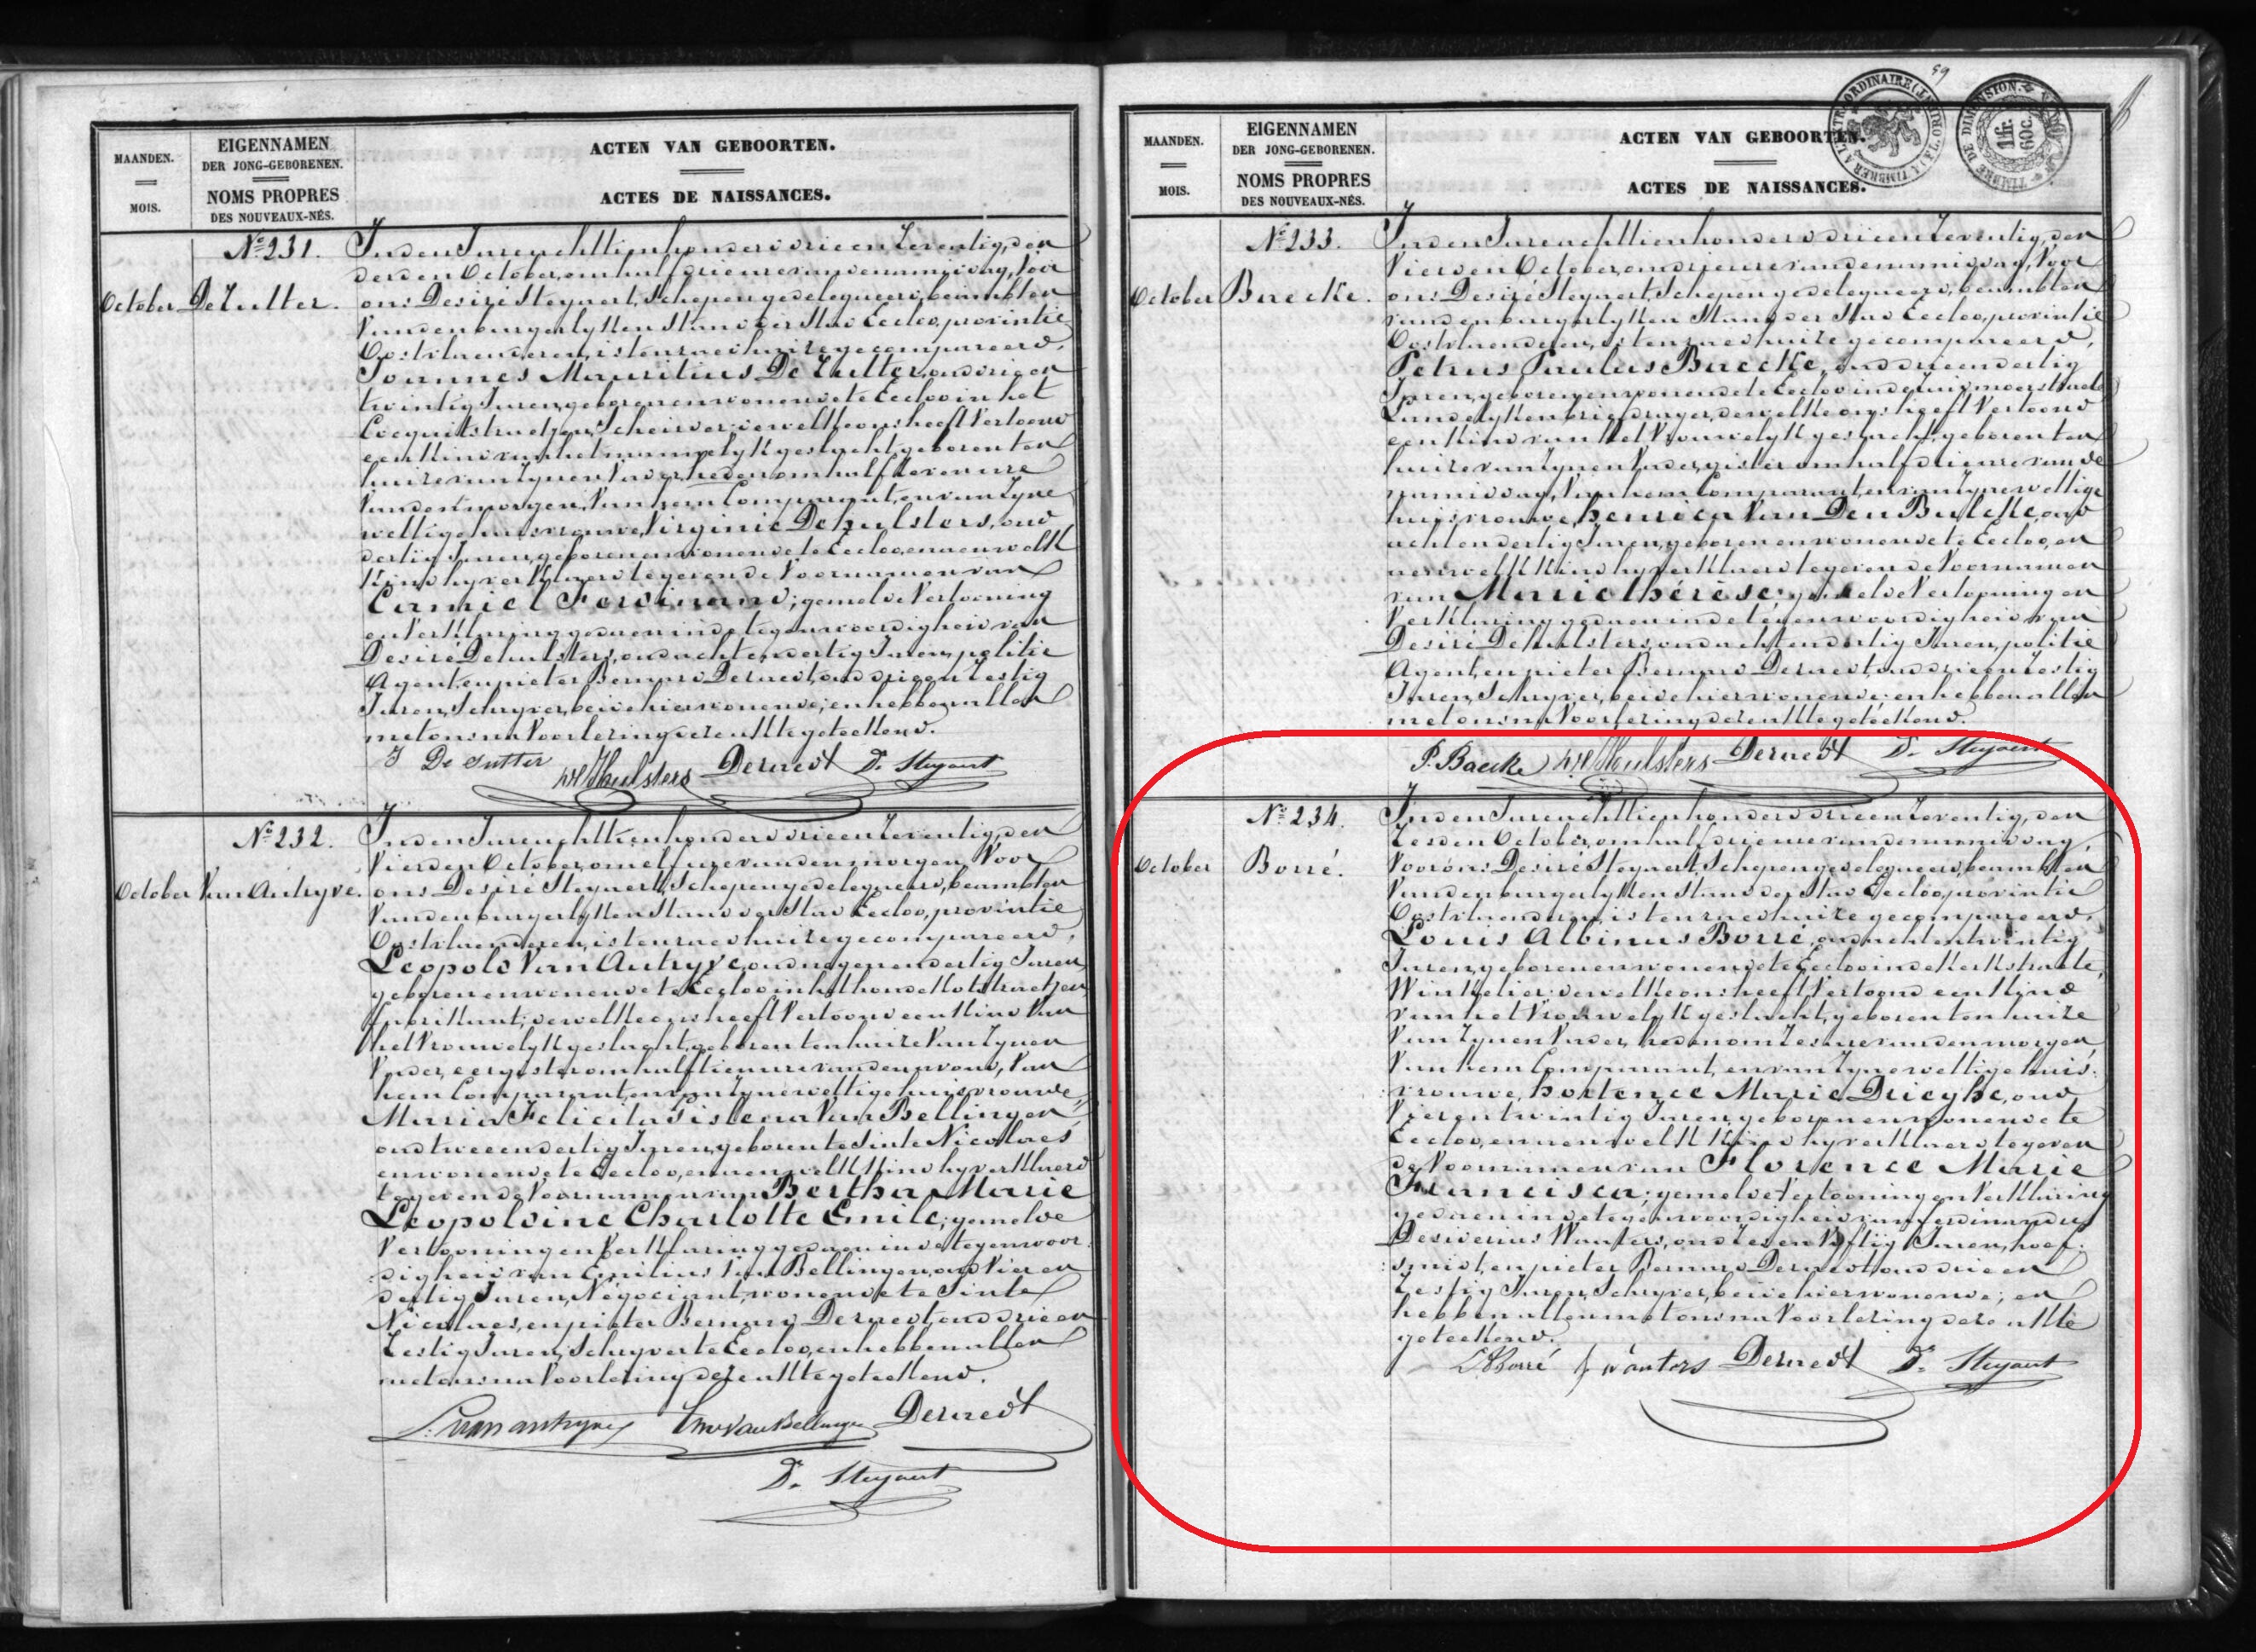 MAANDEN.
MOIS.
EIGENNAMEN
DER JONG-GEBORENEN.
NOMS PROPRES
DES NOUVEAUX-NÉS.
ACTEN VAN GEBOORTEN.
ACTES DE NAISSANCES.
No 231.
October De Zutter.
In den Jare achttien honderd drie en Zeventig, den
derden October, om half drie ure van den namiddag, Voor
ons Desiré Steyaert, Schepen gedelegueerd, beambten
Van den burgerlyken Stand der Stad Eecloo, provintie
Oostvlaenderen, is ten raedhuize gecompareerd,
Joannes Mauritius De Zutter, oud drie en
twintig Jaren, geboren en wonende te Eecloo in het
Scheirder, dewelke ons heeft Vertoond
een Kind van het mannelyk geslacht, geboren ten
huize van Zynen Vader, heden om half Zeven ure
Van den morgen, Van hem Comparant, en van Zyne
wettige huisvrouwe, Virginie Dehulsters, oud
dertig Jaren, geboren en wonende te Eecloo, en aen welk
Kind hy verklaerd te geven de Voornamen van
Camiel Ferdinand; gemelde Vertooning
en Verklaring gedaen in de tegenwoordigheid van
Desiré Dehulsters, oud acht en dertig Jaren, politie
Agent, en pieter Bernard Dernedt, oud drie en Zestig
Jaren, Schryver, beide hier wonende; en hebben allen
met ons na Voorlezing dezen akte geteekend.
J De Sutter Dhulsters Dernedt D. Steyaert
No 232.
October Van Autryve.
In den Jare achttien honderd drie en Zeventig, den
Vierden October, om elf ure van den morgen, Voor
ons Desiré Steyaert, Schepen gedelegueerd, beambten
Van den burgerlyken Stand der Stad Eecloo, provintie
Oostvlaenderen, is ten raedhuize gecompareerd,
Leopold Van Autryve, oud negen en dertig Jaren,
geboren en wonende te Eecloo in het
fabrikant; dewelke ons heeft Vertoond een Kind Van
het Vrouwelyk geslacht, geboren ten huize Van Zynen
Vader, eergister om half tien ure van den avond, Van
hem Comparant, en van Zyne wettige huisvrouwe,
Maria Felicitas Van Bellingen,
oud twee en dertig Jaren, geboren te Sinte Nicolaes
en wonende te Eecloo, en aen welk Kind hy verklaerd
te geven de Voornamen van Bertha, Marie
Leopoldine Charlotte Emile; gemelde
Vertooning en Verklaring gedaen in de tegenwoor-
digheid van Emilius Van Bellingen, oud Vier en
dertig Jaren, Négociant, wonende te Sinte
Nicolaes, en pieter Bernard Dernedt, oud drie en
Zestig Jaren, Schryver te Eecloo, en hebben allen
met ons na Voorlezing dezen akte geteekend.
L. Van autryve Van Bellingen Dernedt
D. Steyaert
59
TIMBRE DE DIMENSION.
1fr.
60c.
MAANDEN.
MOIS.
EIGENNAMEN
DER JONG-GEBORENEN.
NOMS PROPRES
DES NOUVEAUX-NÉS.
ACTEN VAN GEBOORTEN.
ACTES DE NAISSANCES.
No 233.
October Baecke.
In den Jare achttien honderd drie en Zeventig, den
Vierden October, om drie ure van den namiddag, Voor
ons Desiré Steyaert, Schepen gedelegueerd, beambten
van den burgerlyken Stand der Stad Eecloo, provintie
Oostvlaenderen, is ten raedhuize gecompareerd,
Petrus Paulus Baecke, oud drie en dertig
Jaren, geboren en wonende te Eecloo in de Zuidmoerstraete
Landelyken briefdrager, dewelke ons heeft Vertoond
een Kind van het Vrouwelyk geslacht, geboren ten
huize van Zynen Vader, gister om half drie ure van de
namiddag, Van hem Comparant, en van Zyne wettige
huisvrouwe, henrica Van Den Bulcke, oud
acht en dertig Jaren, geboren en wonende te Eecloo, en
aen welk Kind hy verklaerd te geven de Voornamen
van Marie thérèse; gemelde Vertooning en
Verklaring gedaen in de tegenwoordigheid van
Desiré Dehulsters, oud acht en dertig Jaren, politie
Agent, en pieter Bernard Dernedt, oud drie en Zestig
Jaren, Schryver, beide hier wonende; en hebben allen
met ons na Voorlezing dezen akte geteekend.
P. Baecke Dhulsters Dernedt D. Steyaert
No 234.
October Borré.
In den Jare achttien honderd drie en Zeventig, den
Zesden October, om half drie ure van den namiddag,
Voor ons Desiré Steyaert, Schepen gedelegueerd, beambten
Van den burgerlyken Stand der Stad Eecloo, provintie
Oostvlaenderen, is ten raedhuize gecompareerd,
Louis Albinus Borré, oud acht en twintig
Jaren, geboren en wonende te Eecloo in de Kerkstraete,
Winkelier: dewelke ons heeft Vertoond een Kind
van het Vrouwelyk geslacht, geboren ten huize
Van Zynen Vader, heden om Zes ure van den morgen,
Van hem Comparant, en van Zyne wettige huis-
vrouwe, hortence Marie Drieghe, oud
Vier en twintig Jaren, geboren en wonende te
Eecloo, en aen welk Kind hy verklaerd te geven
de Voornamen van Florence Marie
Francisca; gemelde Vertooning en Verklaring
gedaen in de tegenwoordigheid van ferdinandus
Desiderius Wauters, oud Zes en Vyftig Jaren, hoef-
smid, en pieter Bernard Dernedt, oud drie en
Zestig Jaren, Schryver, beide hier wonende; en
hebben allen met ons na Voorlezing dezen akte
geteekend.
L. Borré f wauters Dernedt D. Steyaert